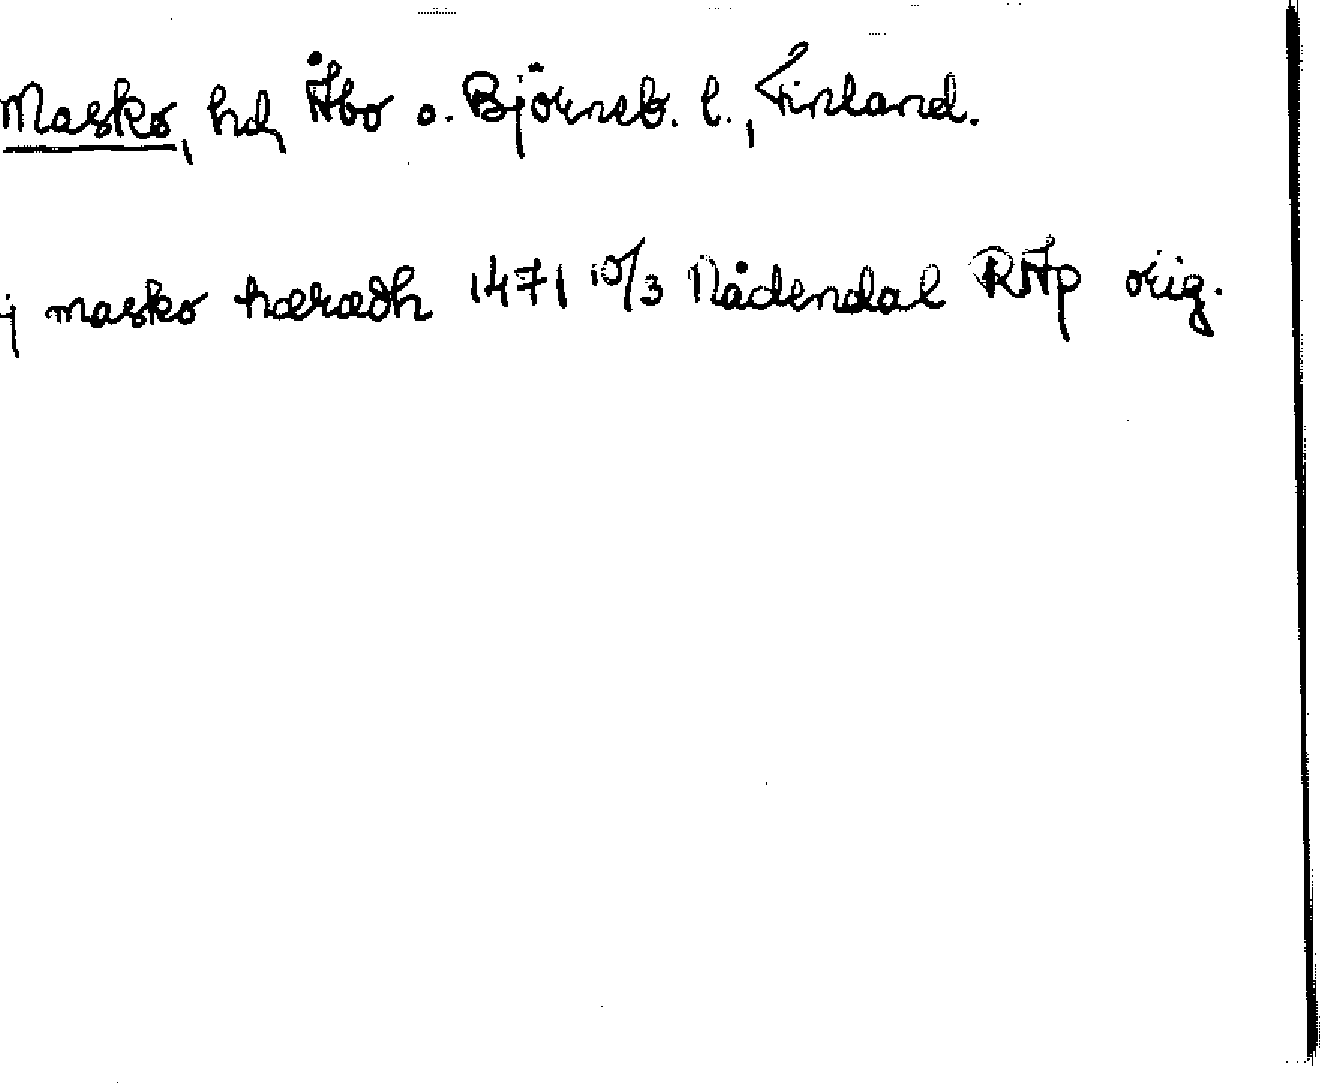 Masko, hd, Åbo o. Björneb. l., Finland.
j masko hærædh 1471 10/3 Nådendal RAp orig.